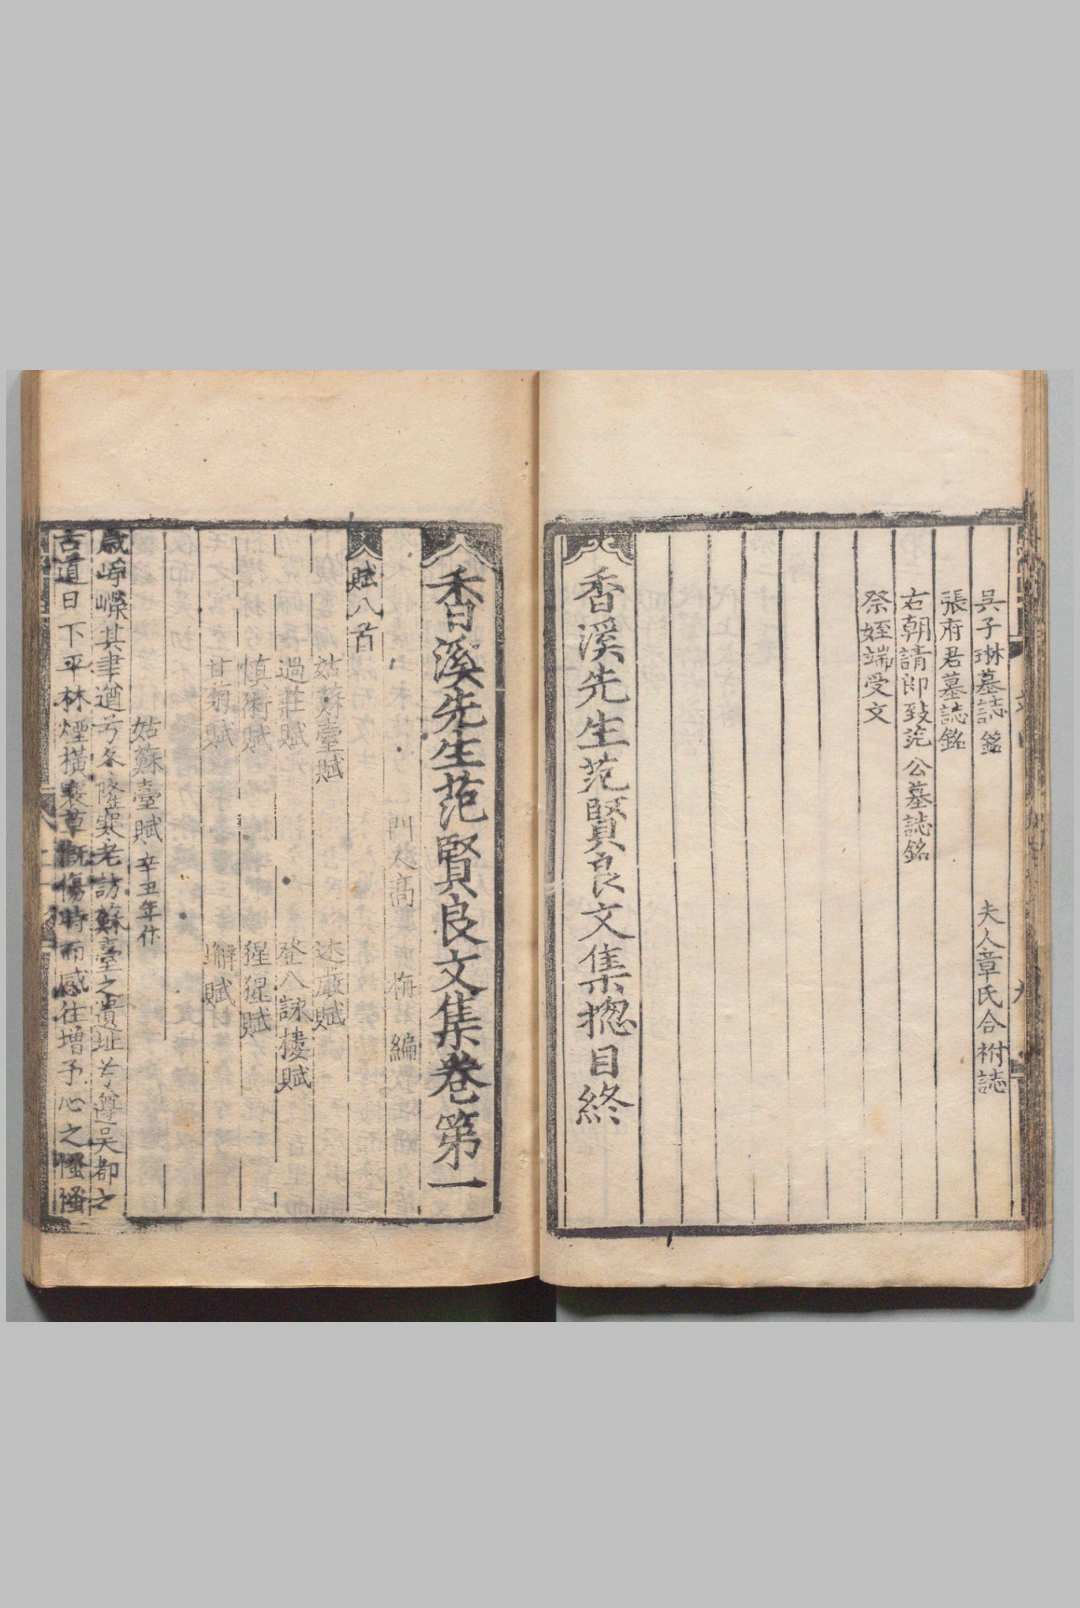 吳子琳墓誌銘 夫人章氏合祔誌
張府君墓誌銘
右朝請郎致范公墓誌銘
祭姪端受文
香溪先生范賢良文集揔目終
香溪先生范賢良文集卷第一
門人高梅編
賦八首
姑蘇臺賦 迷巖賦
過莊賦 登八詠樓賦
慎術賦 猩猩賦
甘菊賦 蟹賦
姑蘇臺賦 辛丑年作
歲崢嶸其聿遒兮冬隆寒老訪蘇臺之遺址兮遵吳都之
古道日下平林煙橫衰草慨傷時而感往增予心之慅慅